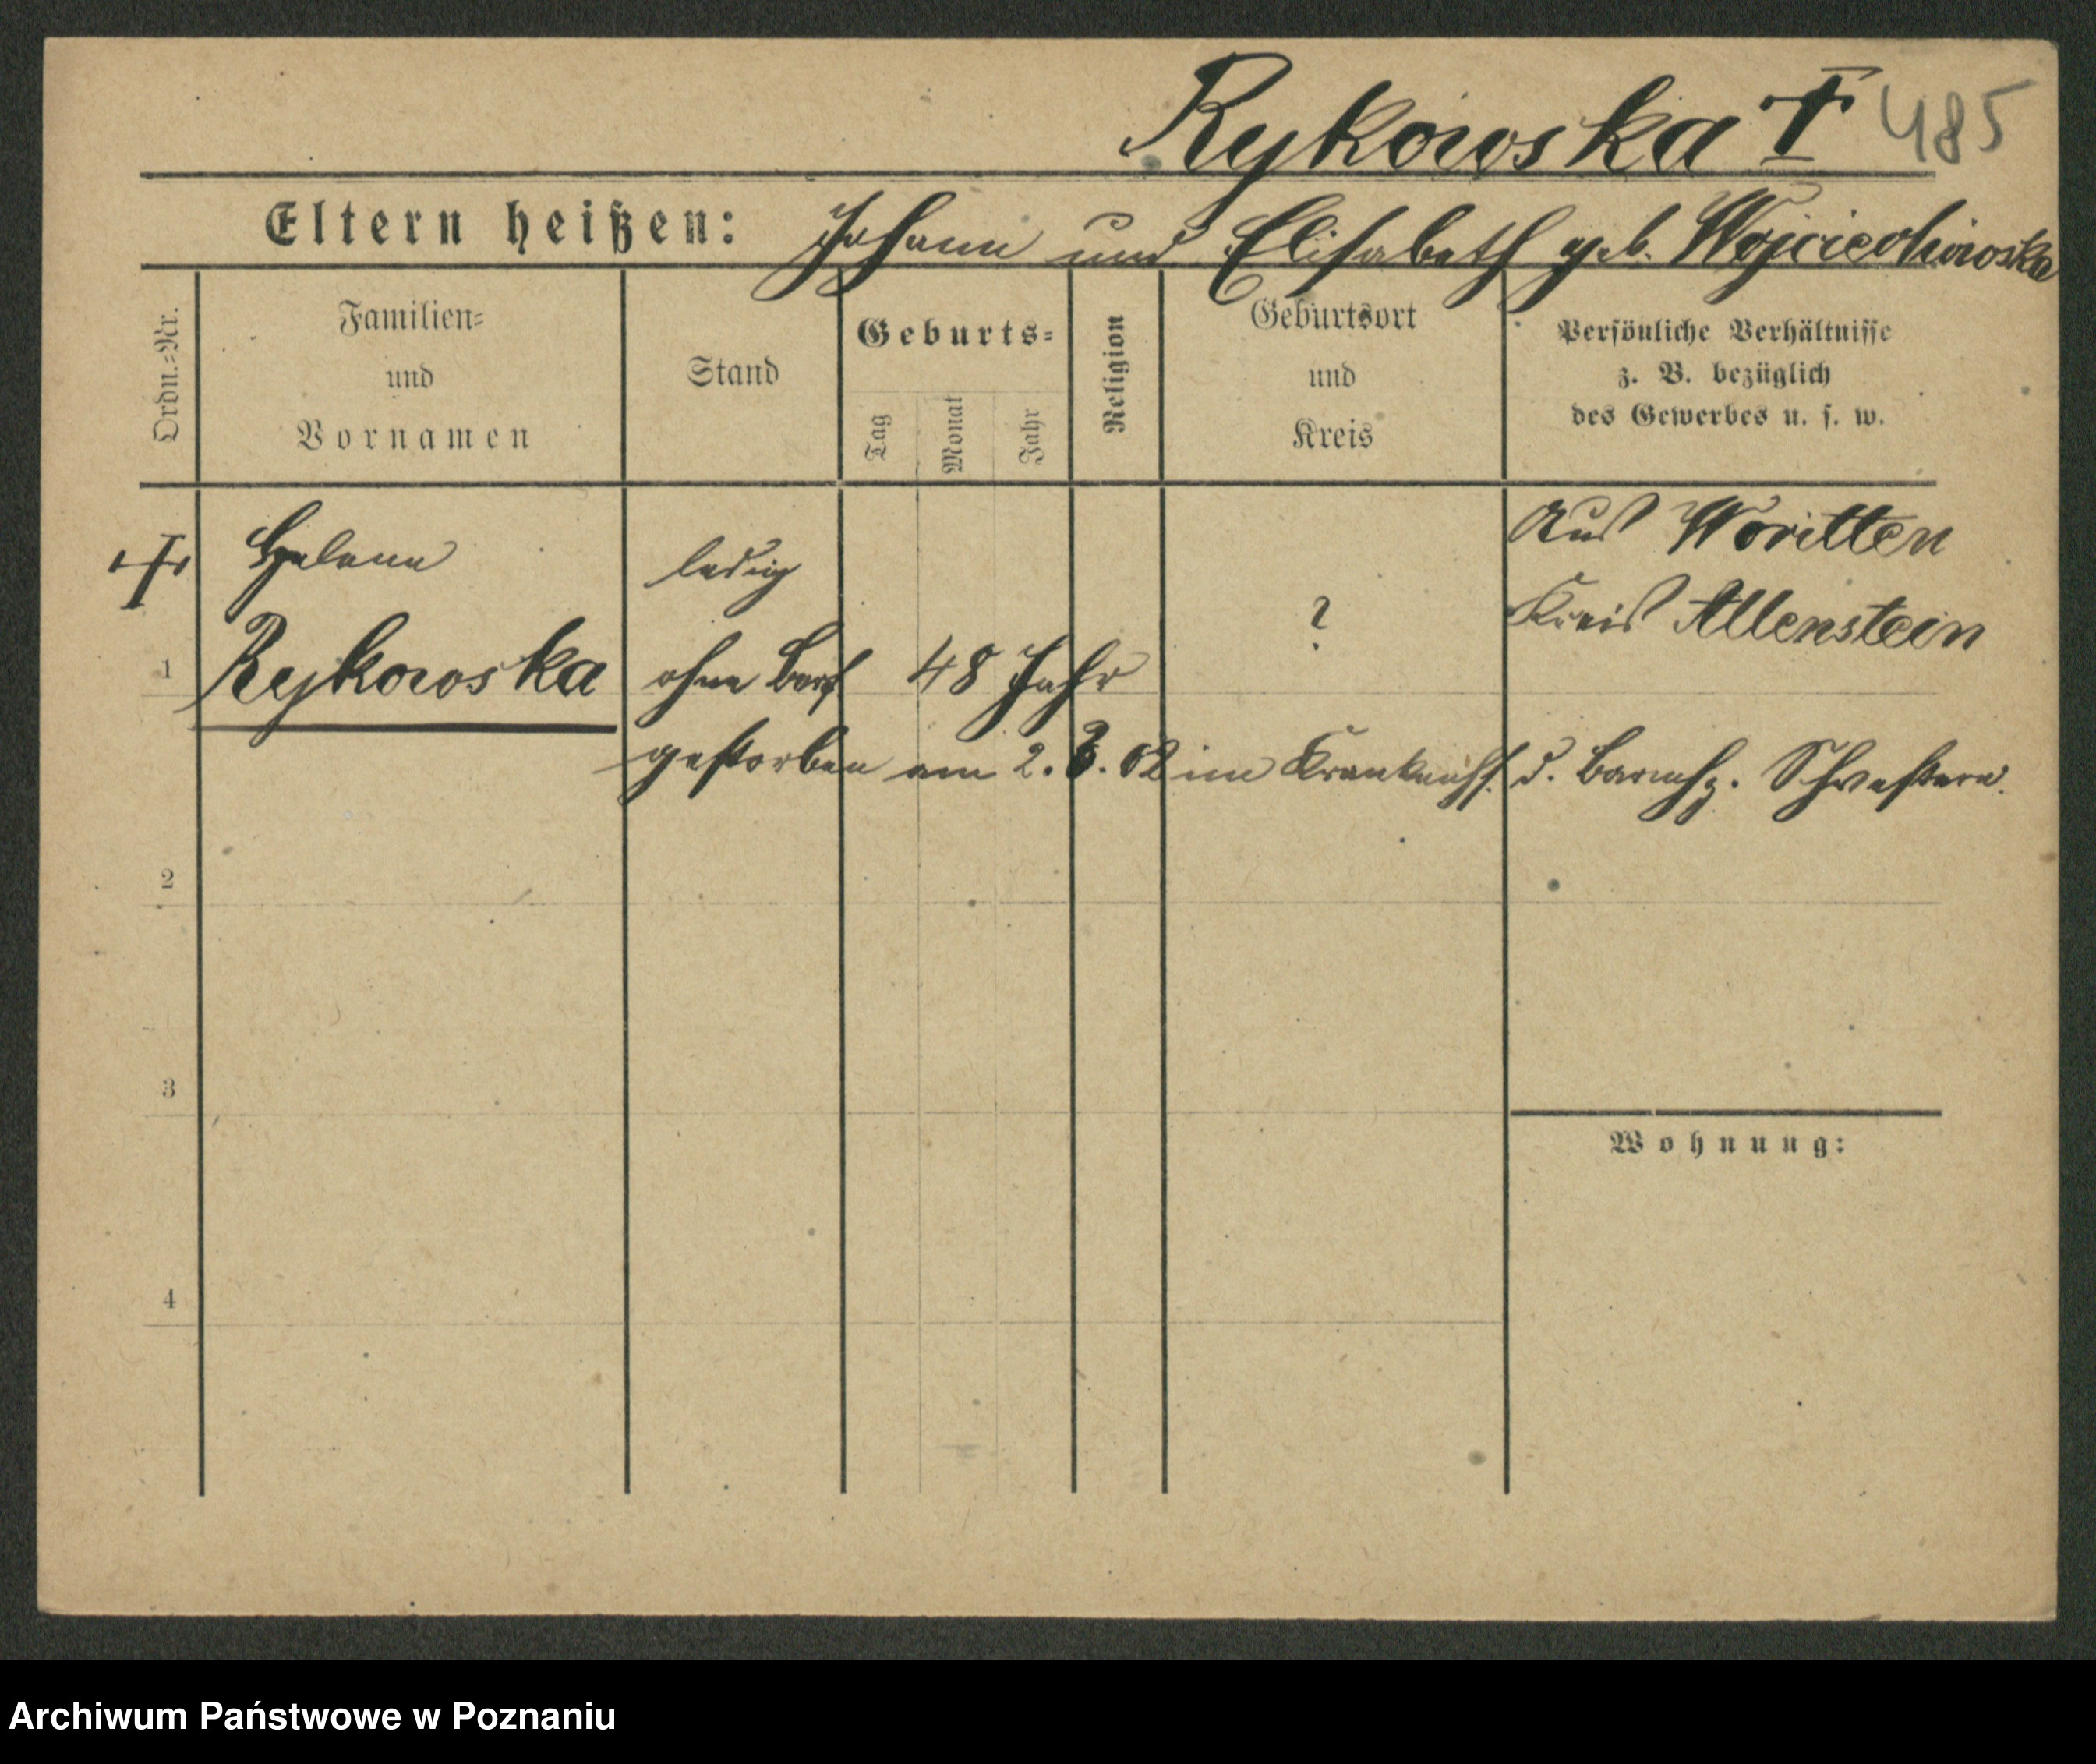 Rykowska † 485
Eltern heißen: Johann und Elisabeth geb. Wojciechowska
Ordn.-Nr.
Familien-
und
Vornamen
Stand
Geburts-
Tag
Monat
Jahr
Religion
Geburtsort
und
Kreis
Persönliche Verhältnisse
z. B. bezüglich
des Gewerbes u. s. w.
† Helene ledig Aus Woritten
? Kreis Allenstein
1 Rykowska ohne 48 Jahr
gestorben am 2. 3. 02 im d. Barmhz. Schwestern.
2
3
Wohnung:
4
Archiwum Państwowe w Poznaniu